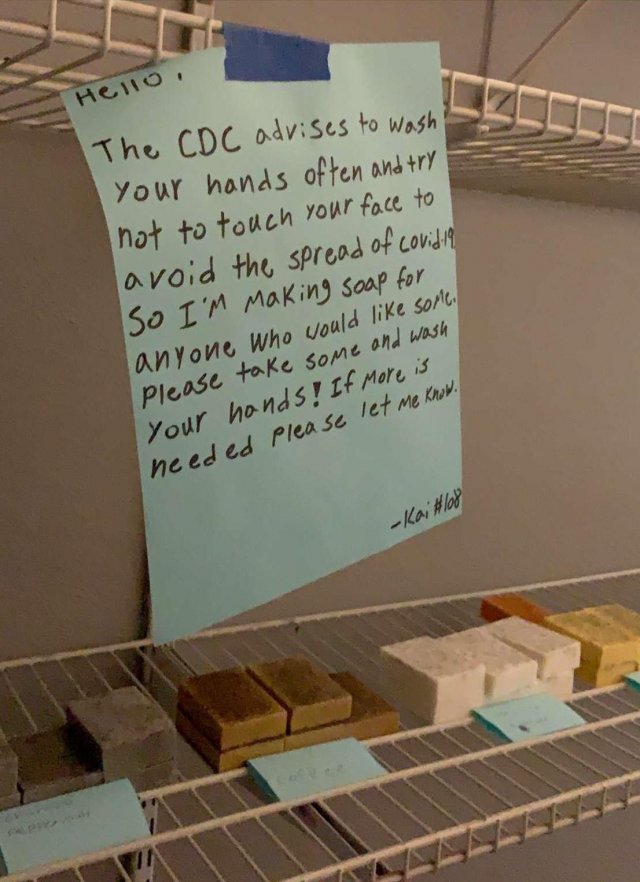 Hello,
The CDC advises to wash
your hands often and try
not to touch your face to
avoid the spread of covid-19
So I'M Making soap for
anyone who would like some.
Please take some and wash
your hands! If more is
needed please let me know.
-Kai #108
coffee